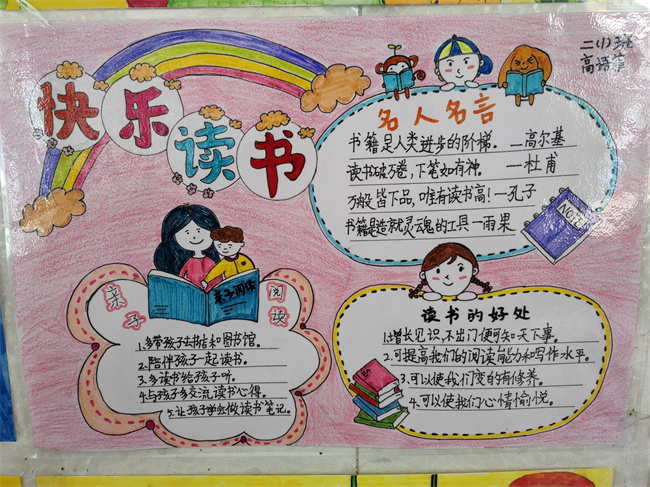 二(1)班
高语
快乐读书
名人名言
书籍是人类进步的阶梯。—高尔基
读书破万卷，下笔如有神。—杜甫
万般皆下品，唯有读书高！—孔子
书籍是造就灵魂的工具—雨果
NOTE
亲子阅读
亲子阅读
1.多带孩子去书店和图书馆。
2.陪伴孩子一起读书。
3.多读书给孩子听。
4.与孩子多交流读书心得。
5.让孩子学会做读书笔记。
读书的好处
1.增长见识，不出门便可知天下事。
2.可提高我们的阅读能力和写作水平。
3.可以使我们变的有修养。
4.可以使我们心情愉悦。